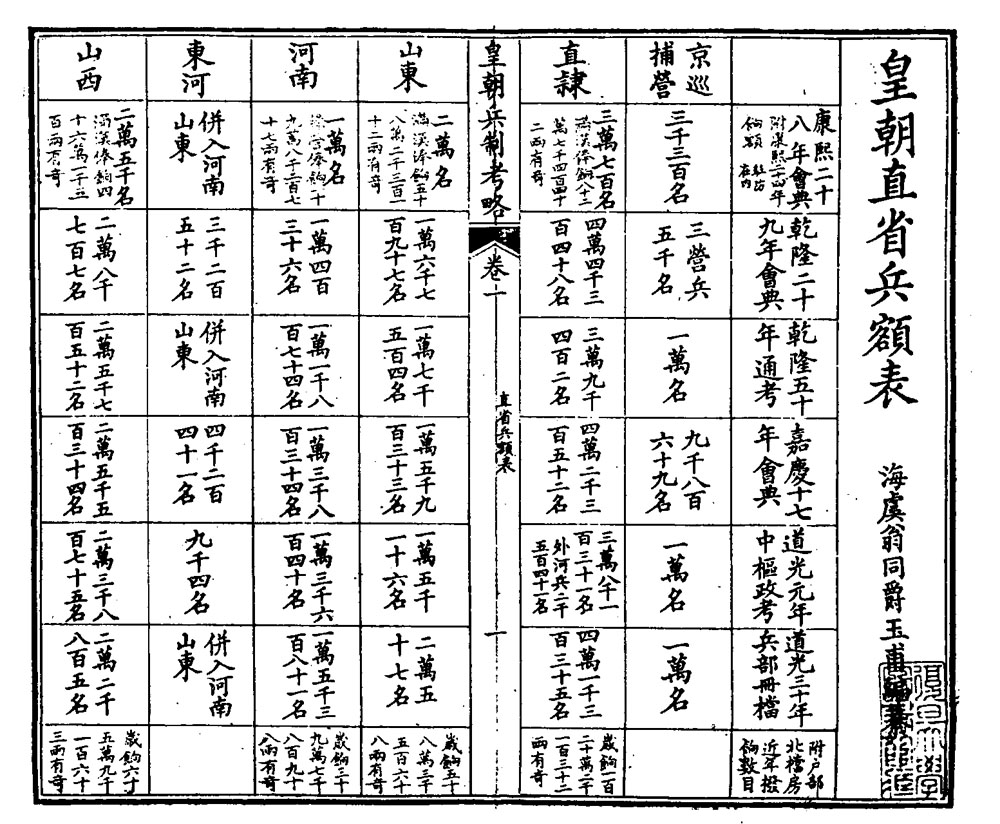 皇朝直省兵額表
海虞翁同爵玉甫編纂
康熙二十
八年會典
附漢熙二十四年
餉額
在內
乾隆二十
九年會典
乾隆五十
年通考
嘉慶十七
年會典
道光元年
中樞政考
道光三十年
兵部冊檔
附户部
北檔房
近年撥
餉數目
京巡
捕營
三千三百名
三營兵
五千名
一萬名
九千八百
六十九名
一萬名
一萬名
直隸
三萬七百名
滿漢俸餉八十三
萬七千四百四十
二兩有奇
四萬四千三
百四十八名
三萬九千
四百二名
四萬二千三
百五十二名
三萬八千一
百三十一名
外河兵二千
五百四十一名
四萬一千三
百三十五名
歲餉一百
二十萬二千
一百三十二
兩有奇
皇朝兵制考略
卷一
直省兵額表
一
山東
二萬名
滿漢俸餉五十
八萬二千三百
十二兩有奇
一萬六千七
百九十七名
一萬七千
五百四名
一萬五千九
百三十三名
一萬五千
一十六名
二萬五
十七名
歲餉五十
八萬三千
五百六十
八兩有奇
河南
一萬名
滿漢俸餉二十
九萬八千二百七
十七兩有奇
一萬四百
三十六名
一萬一千八
百七十四名
一萬三千八
百三十四名
一萬三千六
百四十名
一萬五千三
百八十一名
歲餉三十
九萬七千
八百九十
八兩有奇
東河
併入河南
山東
三千二百
五十二名
併入河南
山東
四千二百
四十一名
九千四名
併入河南
山東
山西
二萬五千名
滿漢俸餉四
十六萬二千三
百兩有奇
二萬八千
七百七名
二萬五千七
百五十二名
二萬五千五
百三十四名
二萬三千八
百七十五名
二萬二千
八百五名
歲餉六十
五萬九千
一百六十
三兩有奇